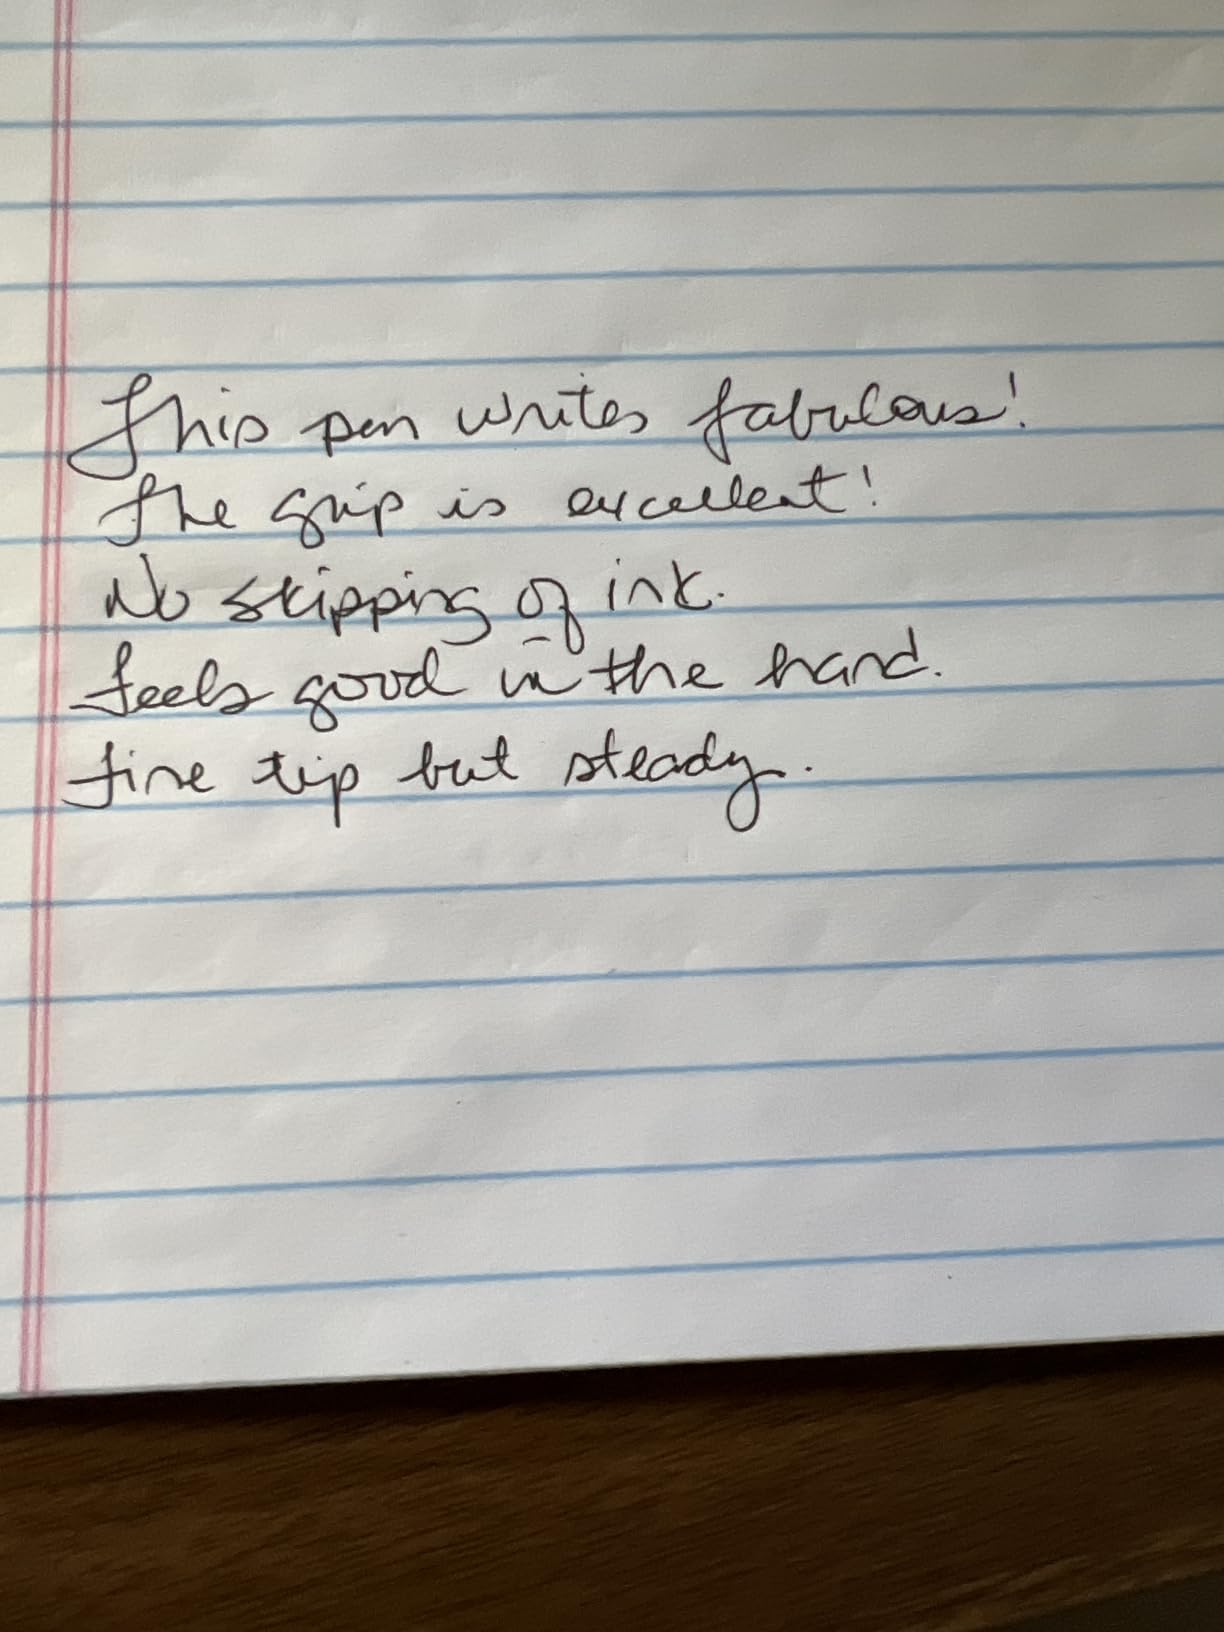 This pen writes fabulous!
The grip is excellent!
No skipping of ink.
feels good in the hand.
fine tip but steady.